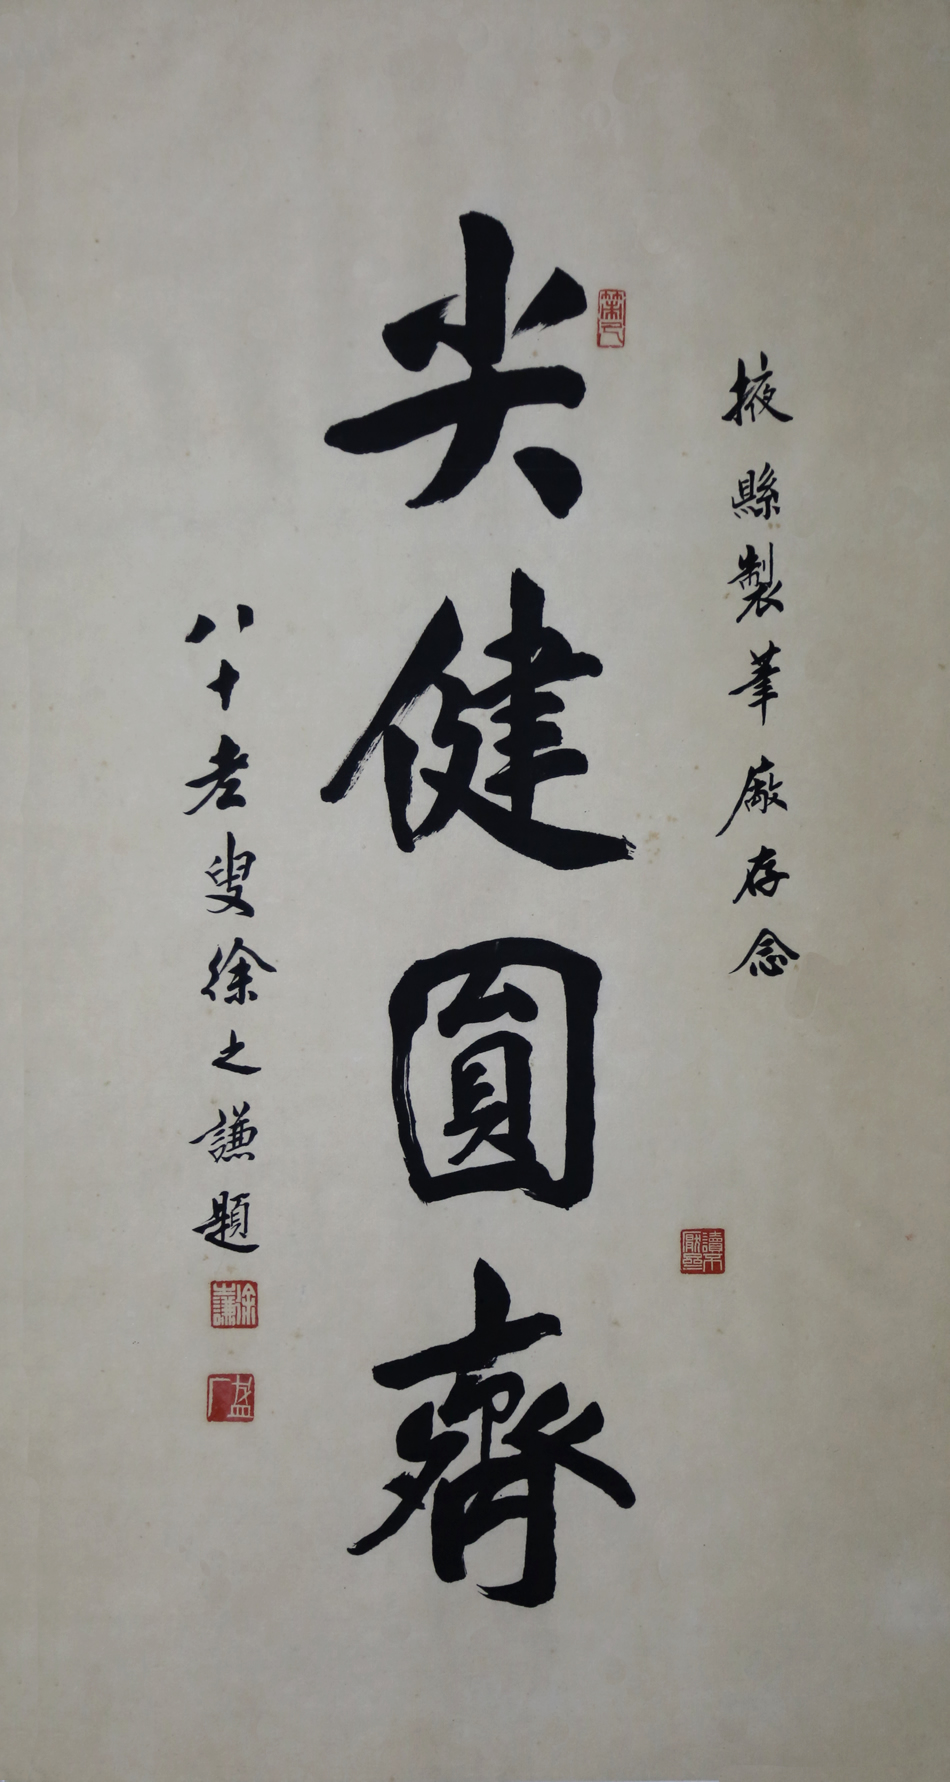 掖縣製筆廠存念
尖健圓齊
八十老叟徐之謙題